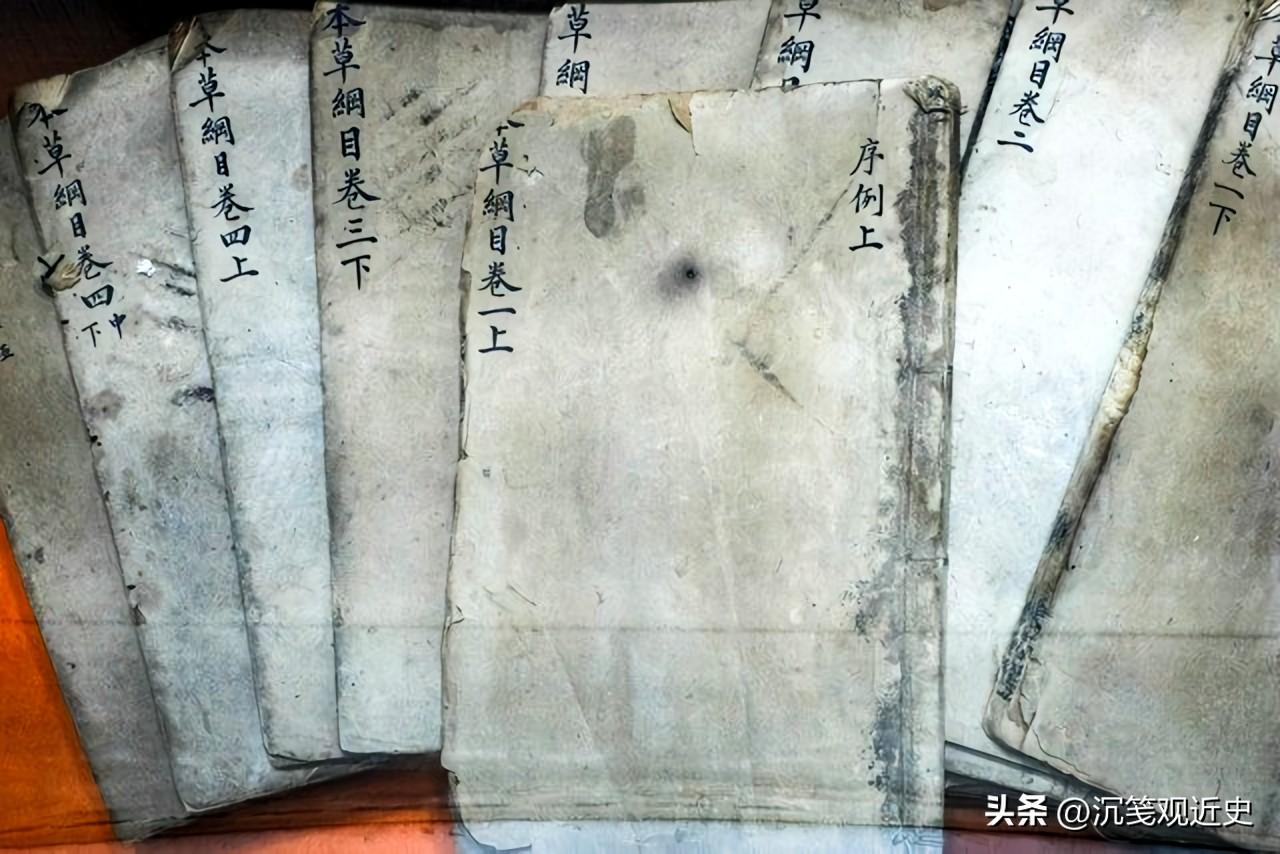 本草綱目卷四下中
本草綱目卷四上
本草綱目卷三下
草綱
本草綱目卷一上
序例上
草綱
草綱目卷二
草綱目卷一下
头条 @沉笔观近史